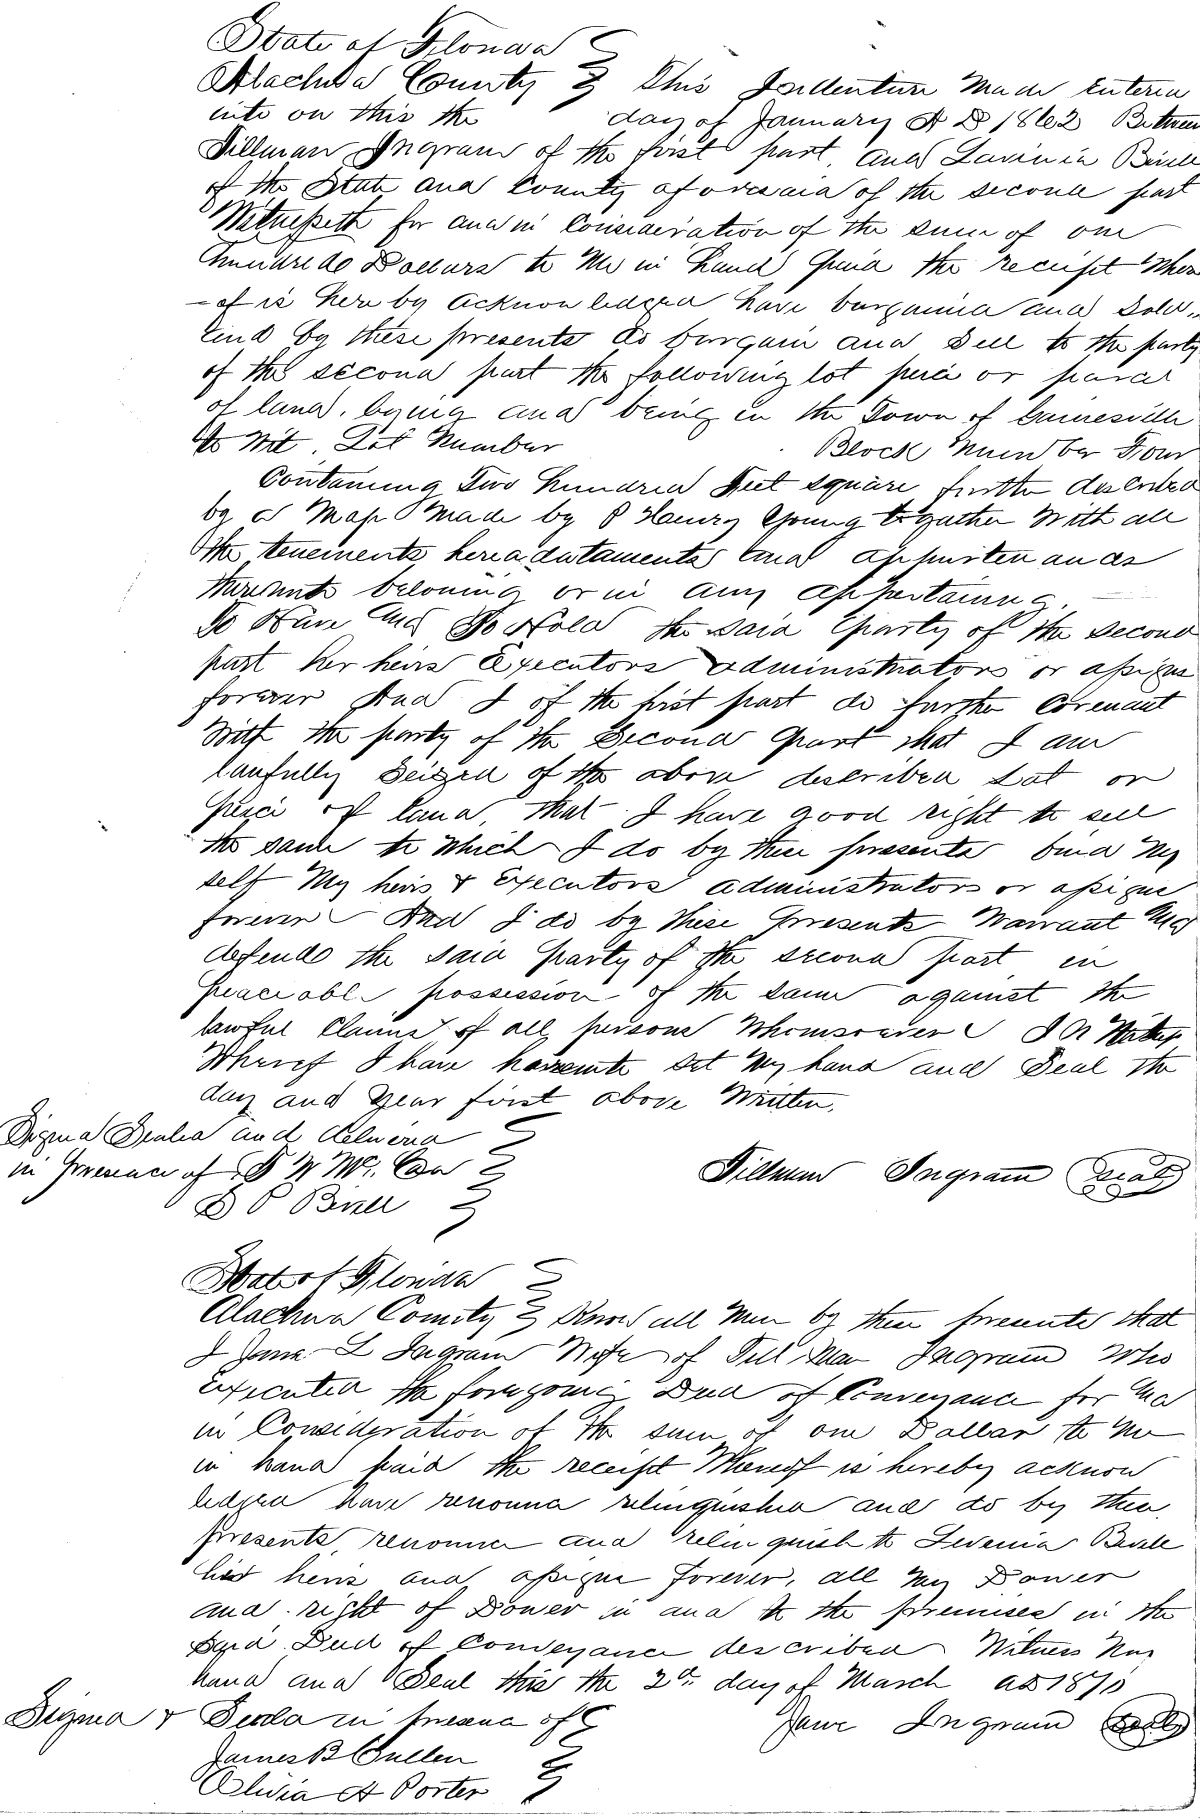 State of Florida
Alachua County This Indenture Made Enterea
into on this the day of January A D 1862 Between
Tillman Ingram of the first part, and Lavinia Bevill
of the State and County aforesaid of the second part
Witnesseth for and in Consideration of the sum of one
hundred Dollars to Me in hand paid the receipt Where
- of is here by acknowledged have bargained and Sold,
and by these presents do bargain and Sell to the party
of the second part the following lot peice or parcel
of land, lying and being in the Town of Gainesville
to Wit, Lot Number Block Number Four
Containing Two hundred Feet square further described
by a Map Made by P Henry Young together With all
the tenements hereadutaments and appurtenances
thereunto belonging or in any appertaining.
To Have And To Hold the said party of the second
part her heirs Executors administrators or assigns
forever And I of the first part do further Covenant
With the party of the Second part that I am
laufully Seized of the above described Lot or
peice of land, that I have good right to sell
the same to which I do by these presents bind My
self My heirs & Executors administrators or assigns
forever And I do by these presents Warrant And
defend the said party of the second part in
peaceable possession of the same against the
lawful Claims of all persons Whomsoever In Witness
Whereof I have hereunto set My hand and Seal the
day and Year first above Written,
Signed Sealed and delivered
in presence of Mc. Tillman Ingram (seal)
Bevill
State of Florida
Alachua County Know all Men by these presents that
I Jane L Ingram Wife of Tillman Ingram Who
executed the foregoing Deed of Conveyance for And
in Consideration of the sum of one Dollar to Me
in hand paid the receipt Whereof is hereby acknow
ledged have renounced relinquished and do by these
presents, renounce and relinquish to Levenia Bevill
heirs and assigns forever, all My Dower
and right of Dower in and to the premises in the
Said Deed of Conveyance described Witness My
hand and Seal this the 2d day of March AD 1870
Signed & Seald in presence of Jane Ingram (Seal)
James B Cullen
Olivia A Porter